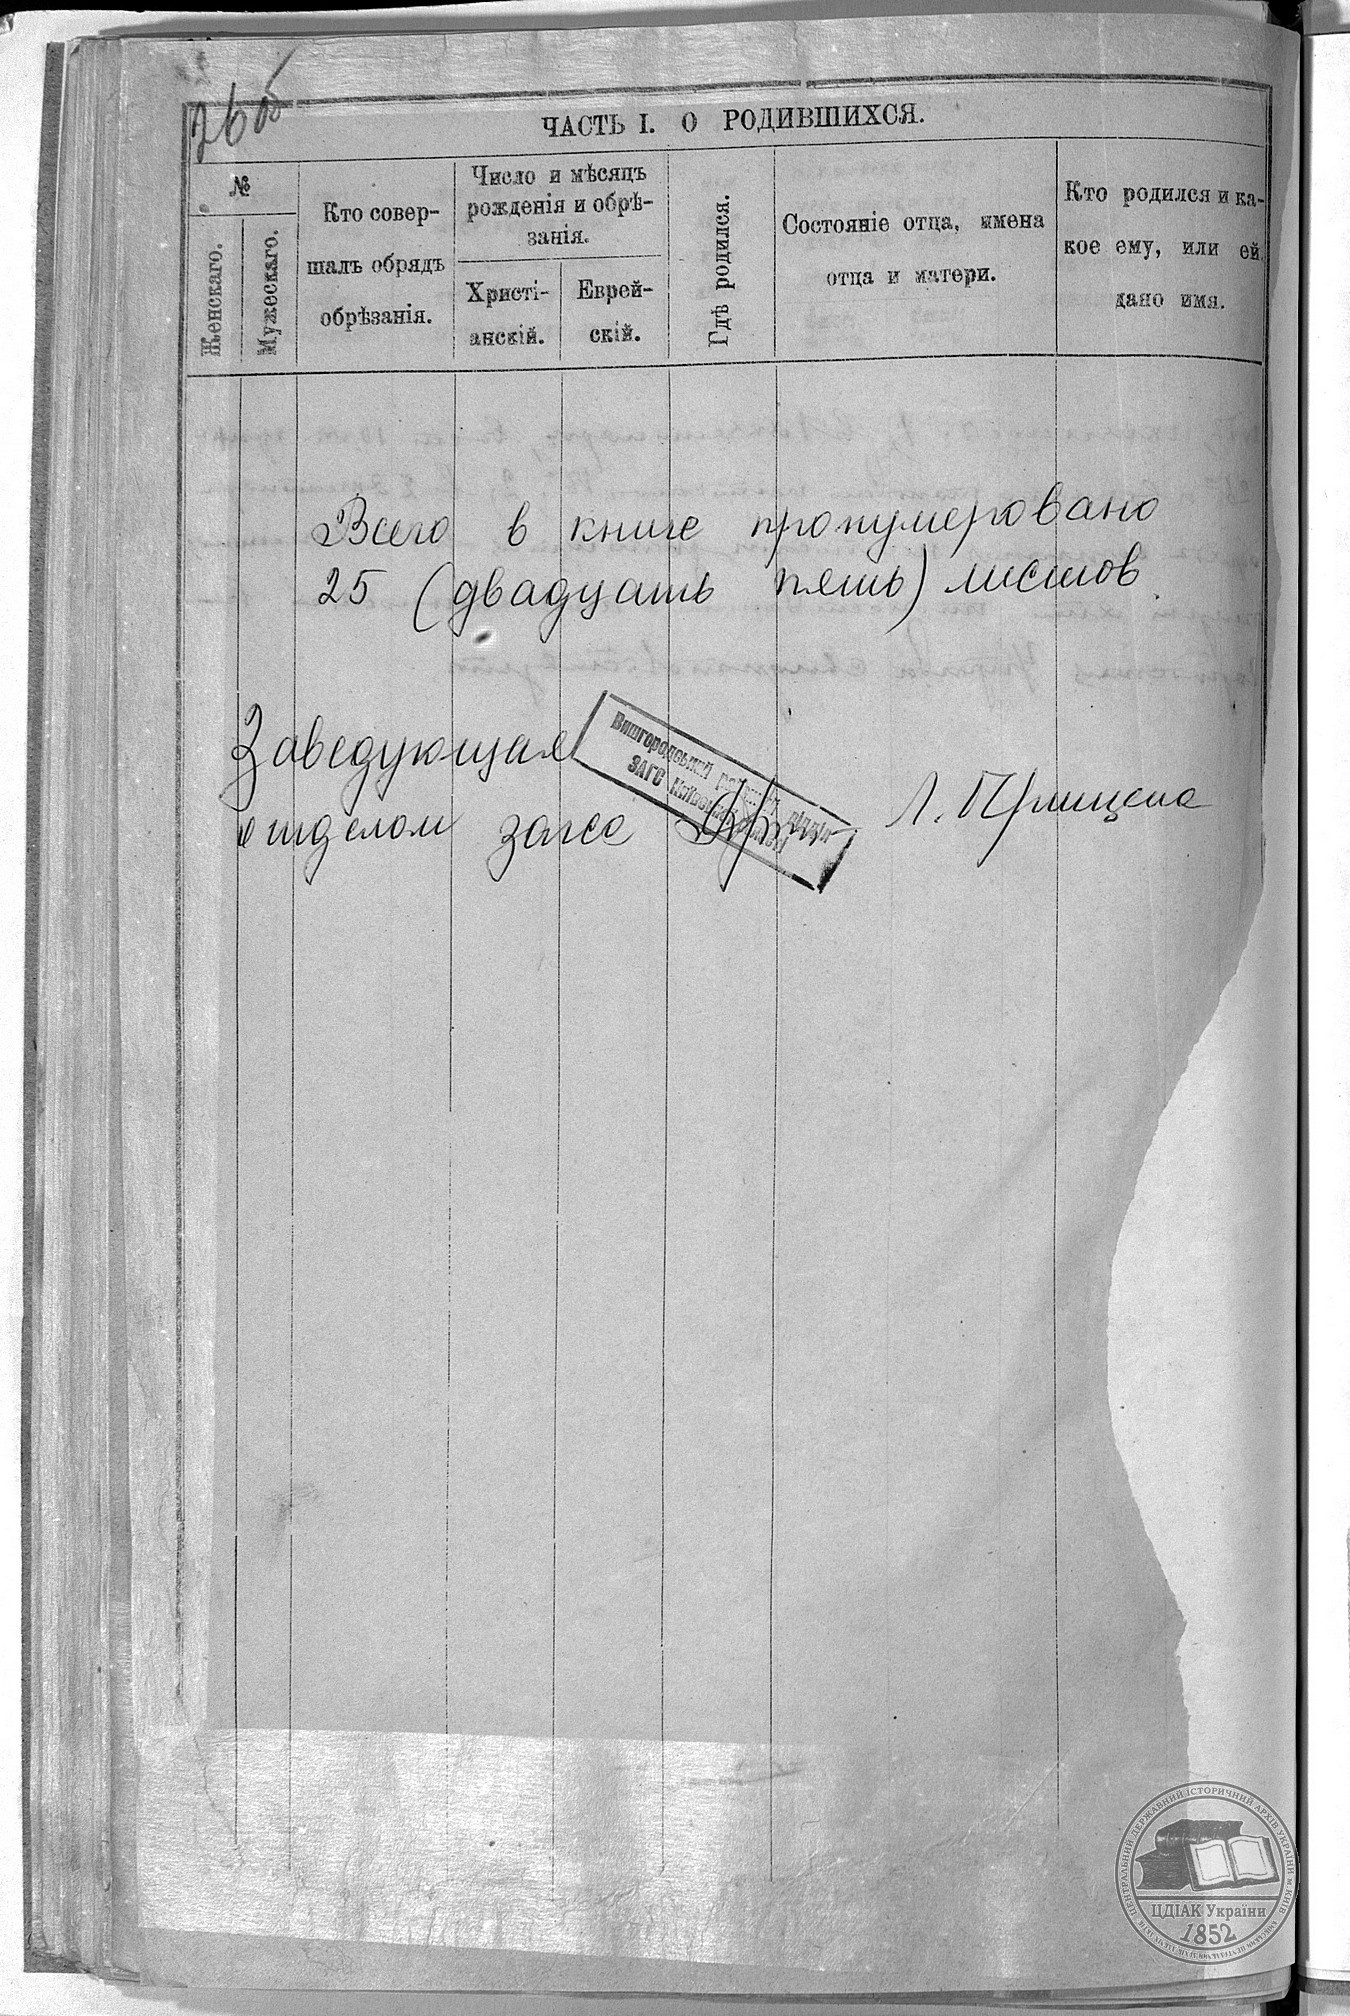 26об
ЧАСТЬ I. О РОДИВШИХСЯ.
№
Женскаго.
Мужескаго.
Кто совер-
шалъ обрядъ
обрѣзанія.
Число и мѣсяцъ
рожденія и обрѣ-
занія.
Христі-
анскій.
Еврей-
скій.
Гдѣ родился.
Состояніе отца, имена
отца и матери.
Кто родился и ка-
кое ему, или ей
дано имя.
Всего в книге пронумеровано
25 (двадцать пять) листов.
Заведующая
отделом загса Л.
Вишгородський районний відділ
ЗАГС Київської області
ЦЕНТРАЛЬНИЙ ДЕРЖАВНИЙ ІСТОРИЧНИЙ АРХІВ УКРАЇНИ М. КИЇВ
ЦДІАК України
1852